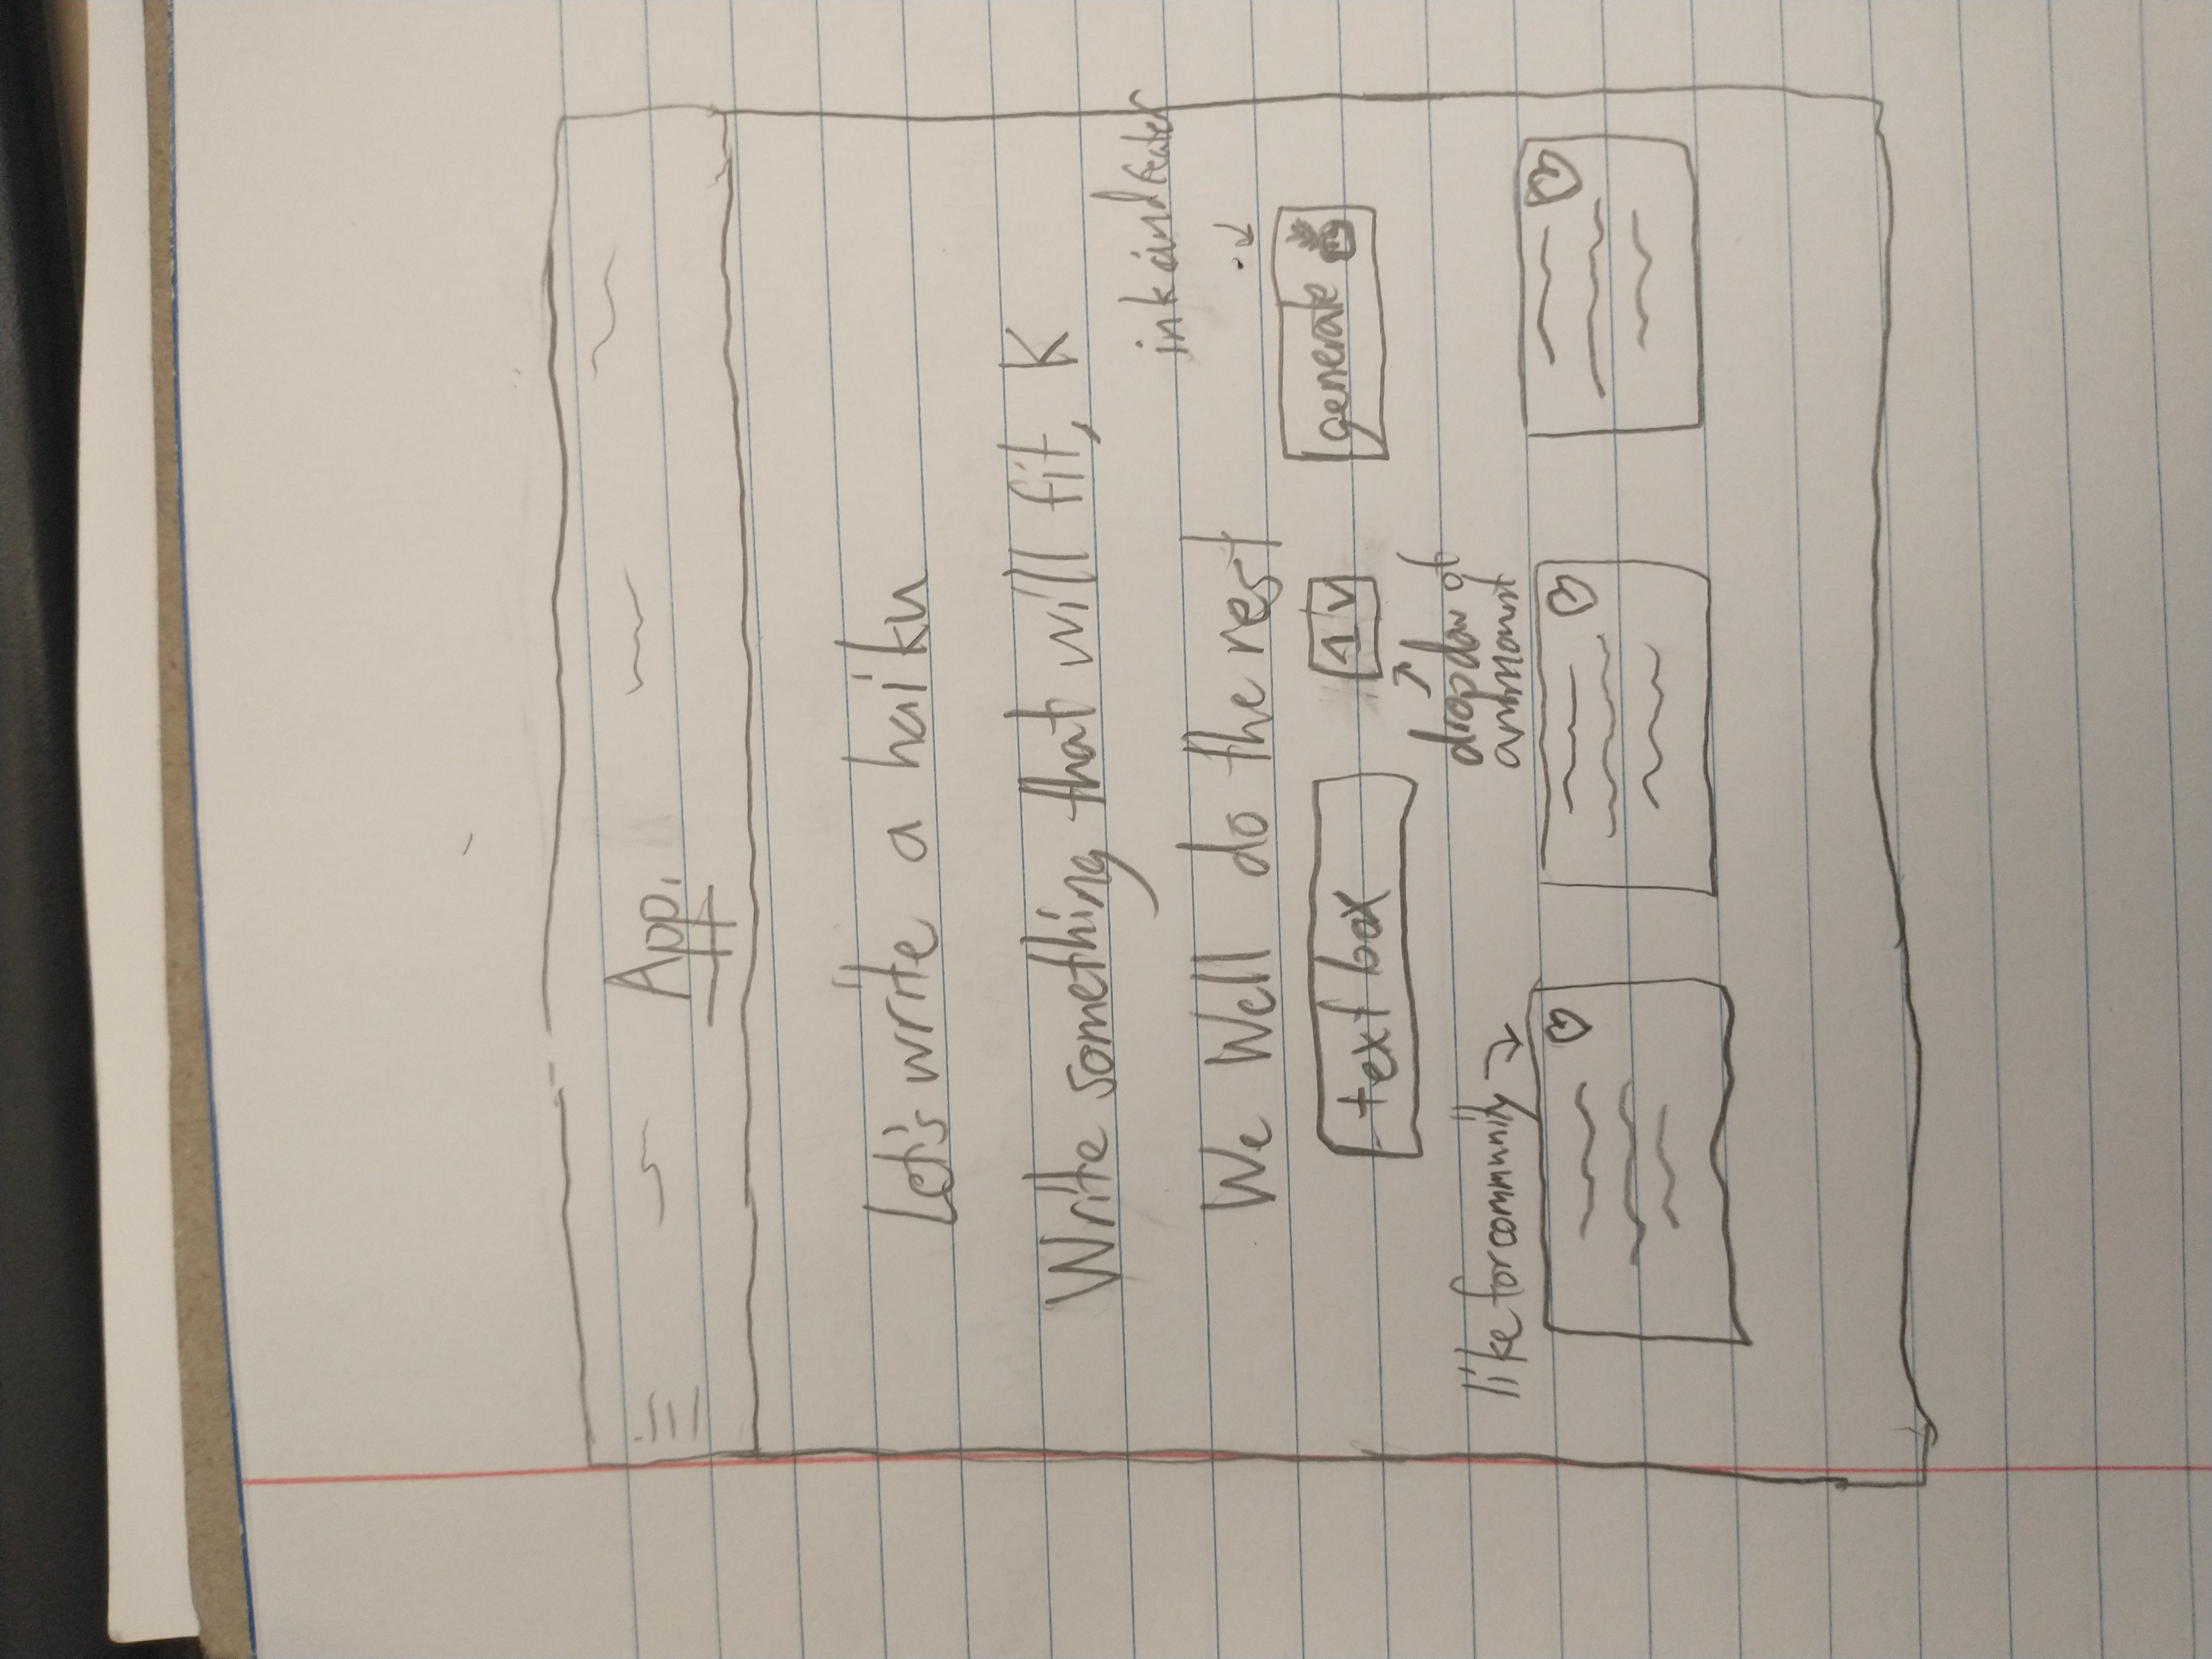 App.
Let's write a haiku
Write something that will fit, K
We Well do the rest
ink and
text box
1 v
generate
dropdow of
ammount
like for community